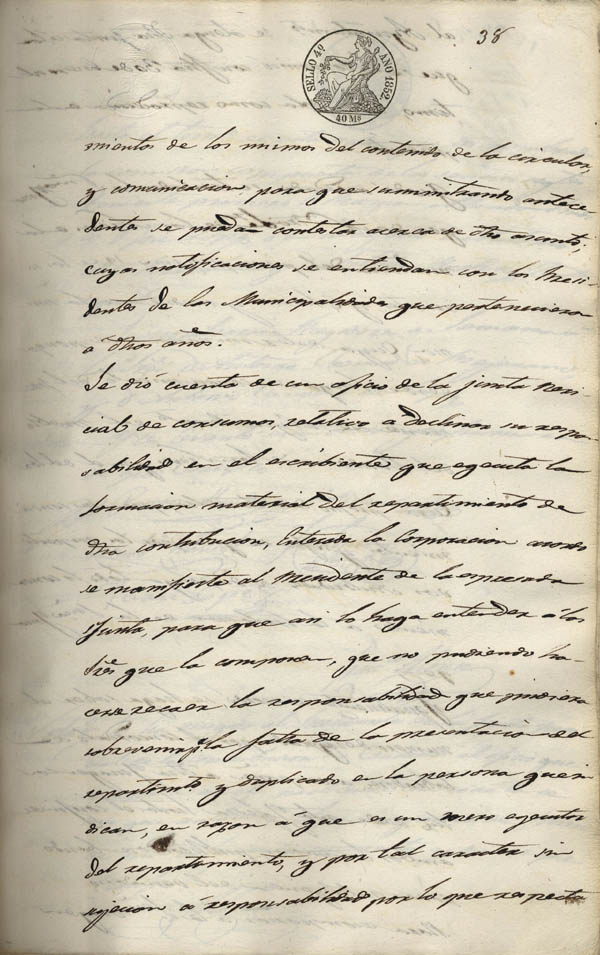 38
SELLO 4º AÑO 1852.
40 Ms
mientos de los mimos del contenido de la circular,
y comunicacion para que suministrando antece-
dentes se puedan contestar acerca de dho asunto;
cuyas notificaciones se entiendan con los Presi-
dentes de las Municipalidades que pertenecieron
a dhos años.
Se dió cuenta de un oficio de la junta peri-
cial de consumos, relativo a declinar su respon-
sabilidad en el escribiente que egecuta la
formacion material del repartimiento de
dha contribucion, Enterada la Corporacion acordó
se manifieste al Presidente de la espresada
Junta, para que asi lo haga entender á los
Sres que la componen, que no pudiendo ha-
cerse recaer la responsabilidad que pudiera
sobrevenir pr la falta de la presentacion del
repartimto y duplicado en la persona que in-
dican, en razon á que es un mero egecutor
del repartimiento, y por tal caracter sin
sujecion á responsabilidad por lo que respecta